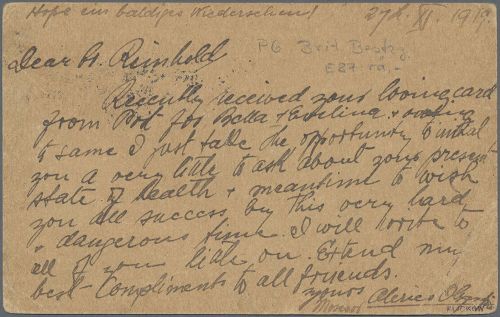 Hope ein baldiges Wiedersehen! 27th XI. 191
PG Brit. Besetzg
E87.ra,-
Dear Br. Reinhold
Recently received your loving card
from for Bella + Evelina +
to same I just take the opportunity to
you a very little to ask about your present
state of health + meantime to wish
you all success by this very hard
+ dangerous time. I will write to
all of you little on. Extend my
best compliments to all friends.
yours